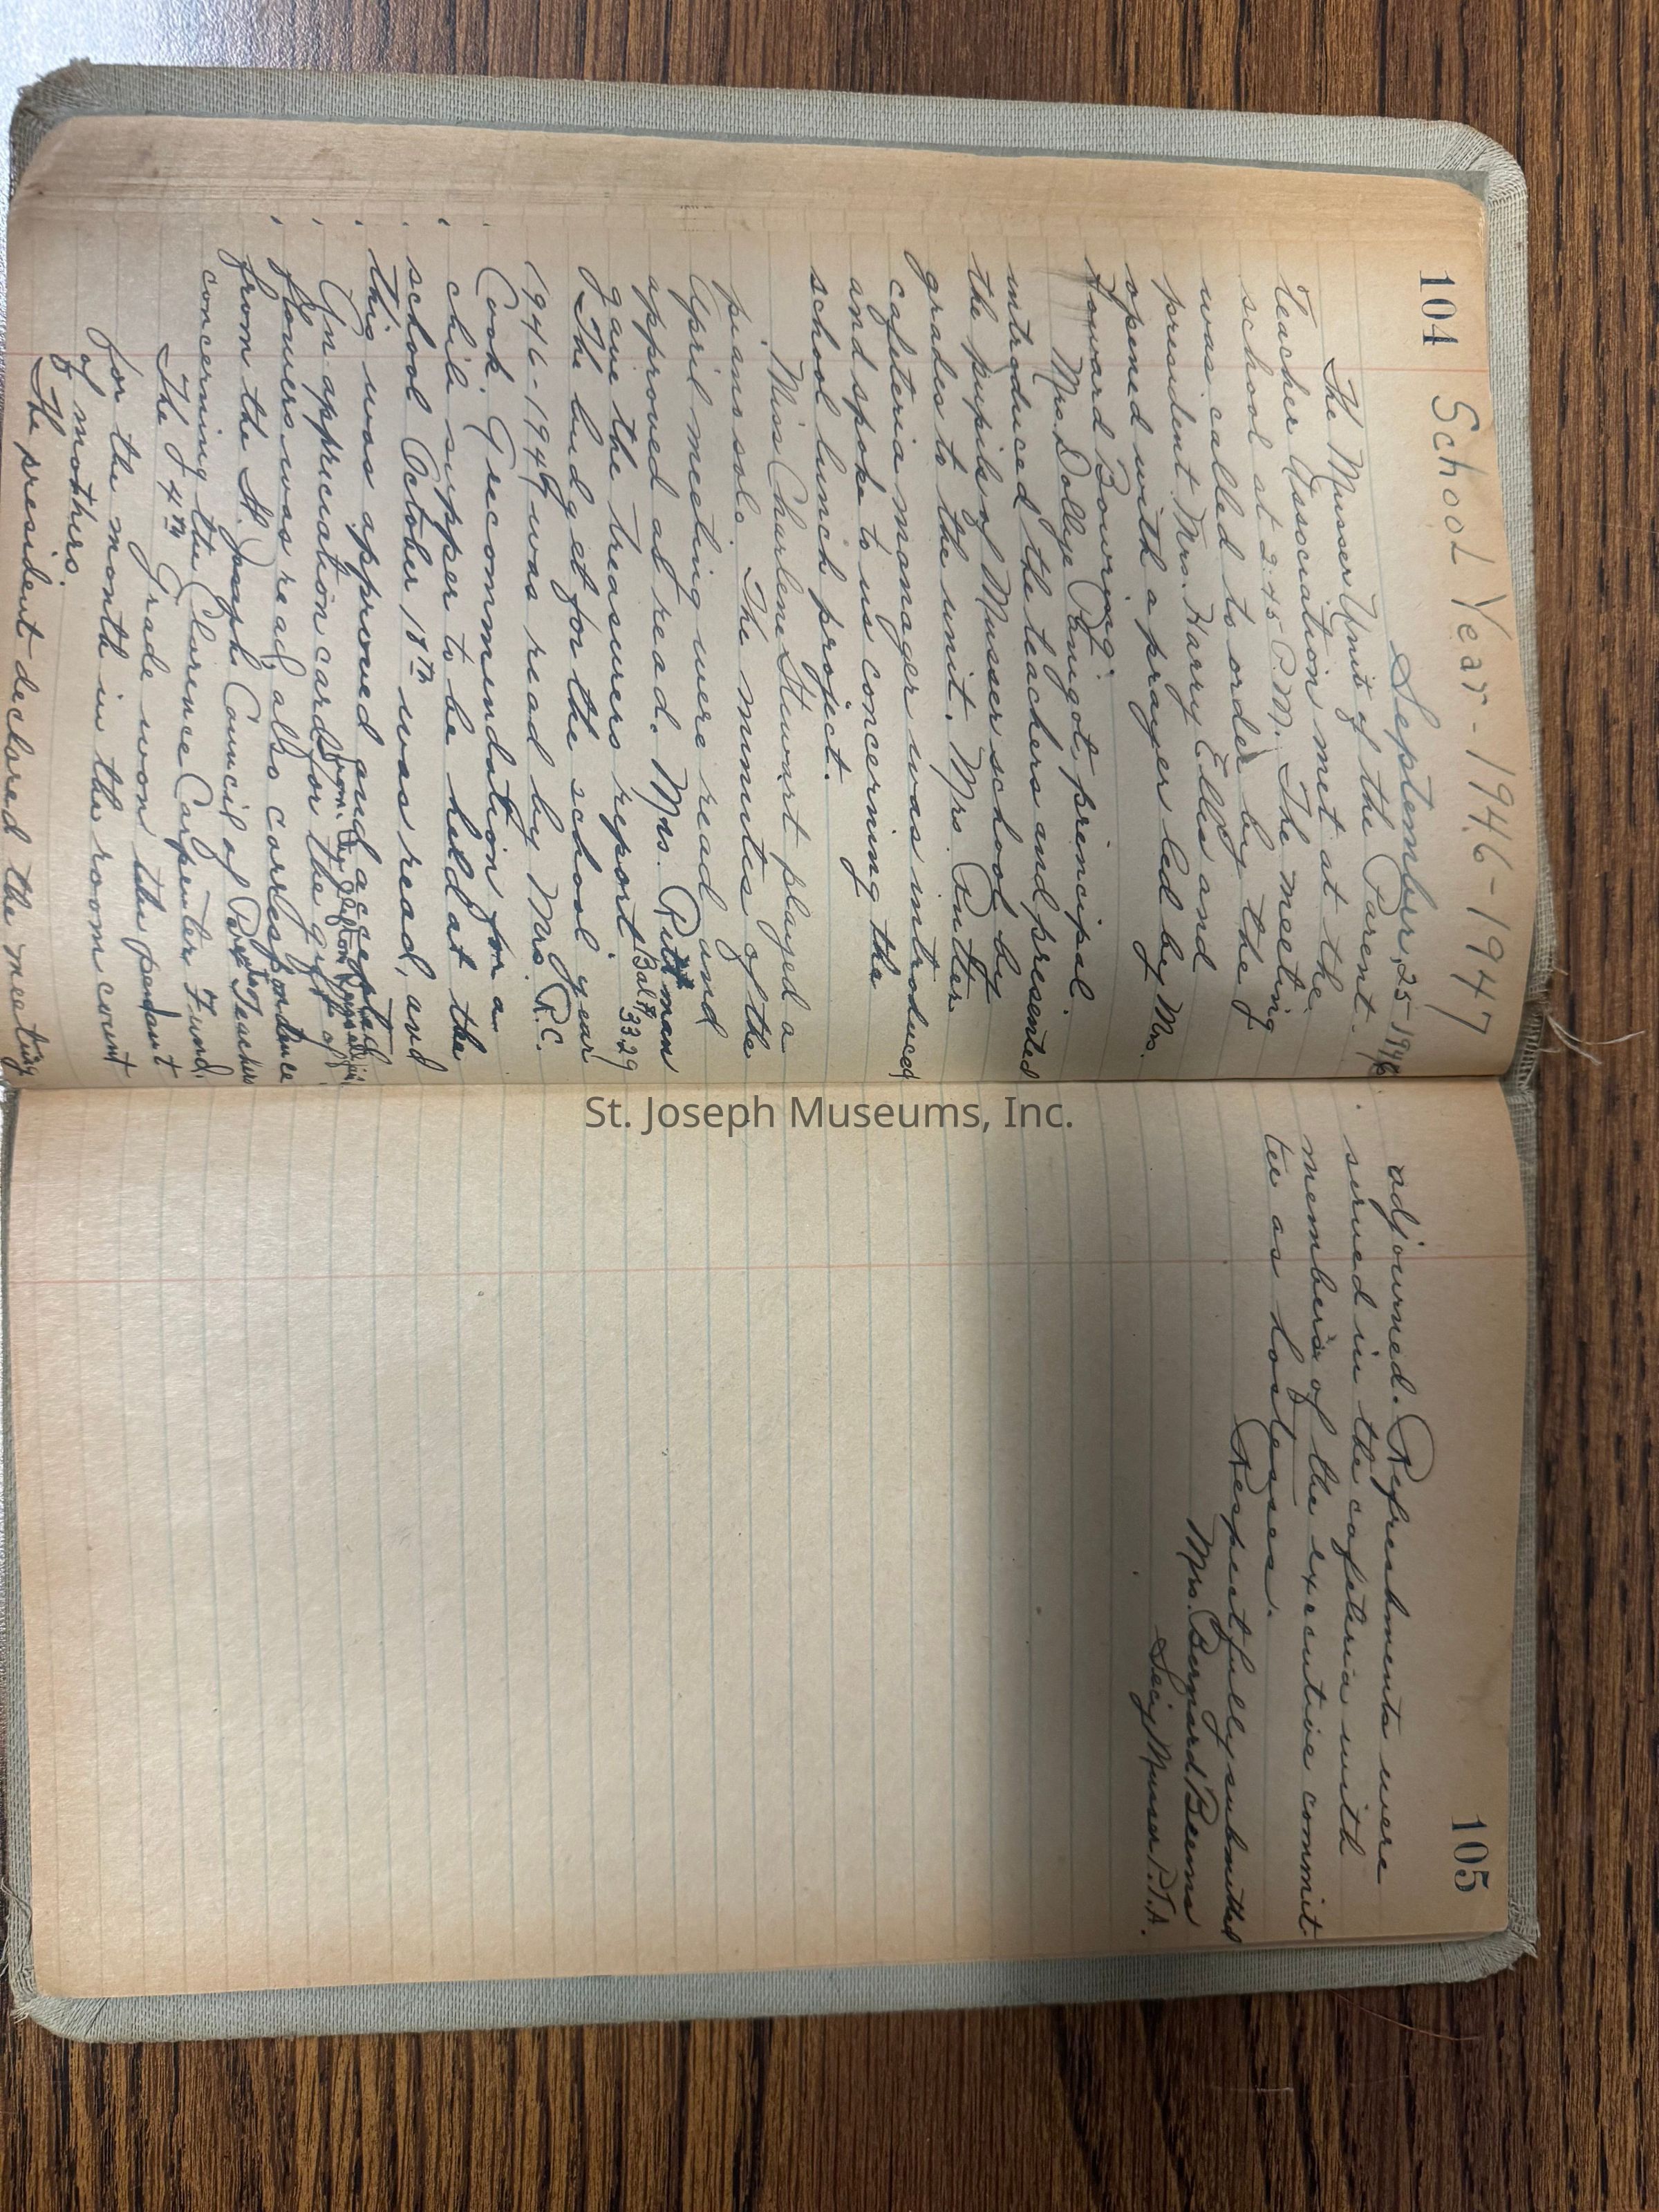 104
School Year - 1946-1947
September, 25 1946.
The Musser Unit of the Parent-
Teacher Association met at the
school at 2:45 P.M. The meeting
was called to order by the
president Mrs. Harry Ellis and
opened with a prayer led by Mrs.
Howard Bowring.
Mrs. Dollye Pengot, principal
introduced the teachers and presented
the pupils of Musser school by
grades to the unit. Mrs. Rutter
cafeteria manager was introduced
and spoke to us concerning the
school lunch project.
Miss Charlene Stewart played a
piano solo. The minutes of the
April meeting were read and
approved as read. Mrs.
gave the treasurers report Bal $ 33.29
The budget for the school year
1946-1947 was read by Mrs. R.C.
Cook. A recommendation for a
chili supper to be held at the
school October 18th was read, and
this was approved and accepted
An appreciation card from for the gift of
flowers was read, also correspondence
from the St. Joseph Council of Parent Teachers
concerning the Clarence Carpenter Fund.
The 4th Grade won the pendant
for the month in the room count
of mothers.
The president declared the meeting
105
adjourned. Refreshments were
served in the cafeteria with
members of the executive commit-
tee as hostesses.
Respectfully submitted
Mrs. Bernard Beems
Sec'y Musser P.T.A.
St. Joseph Museums, Inc.